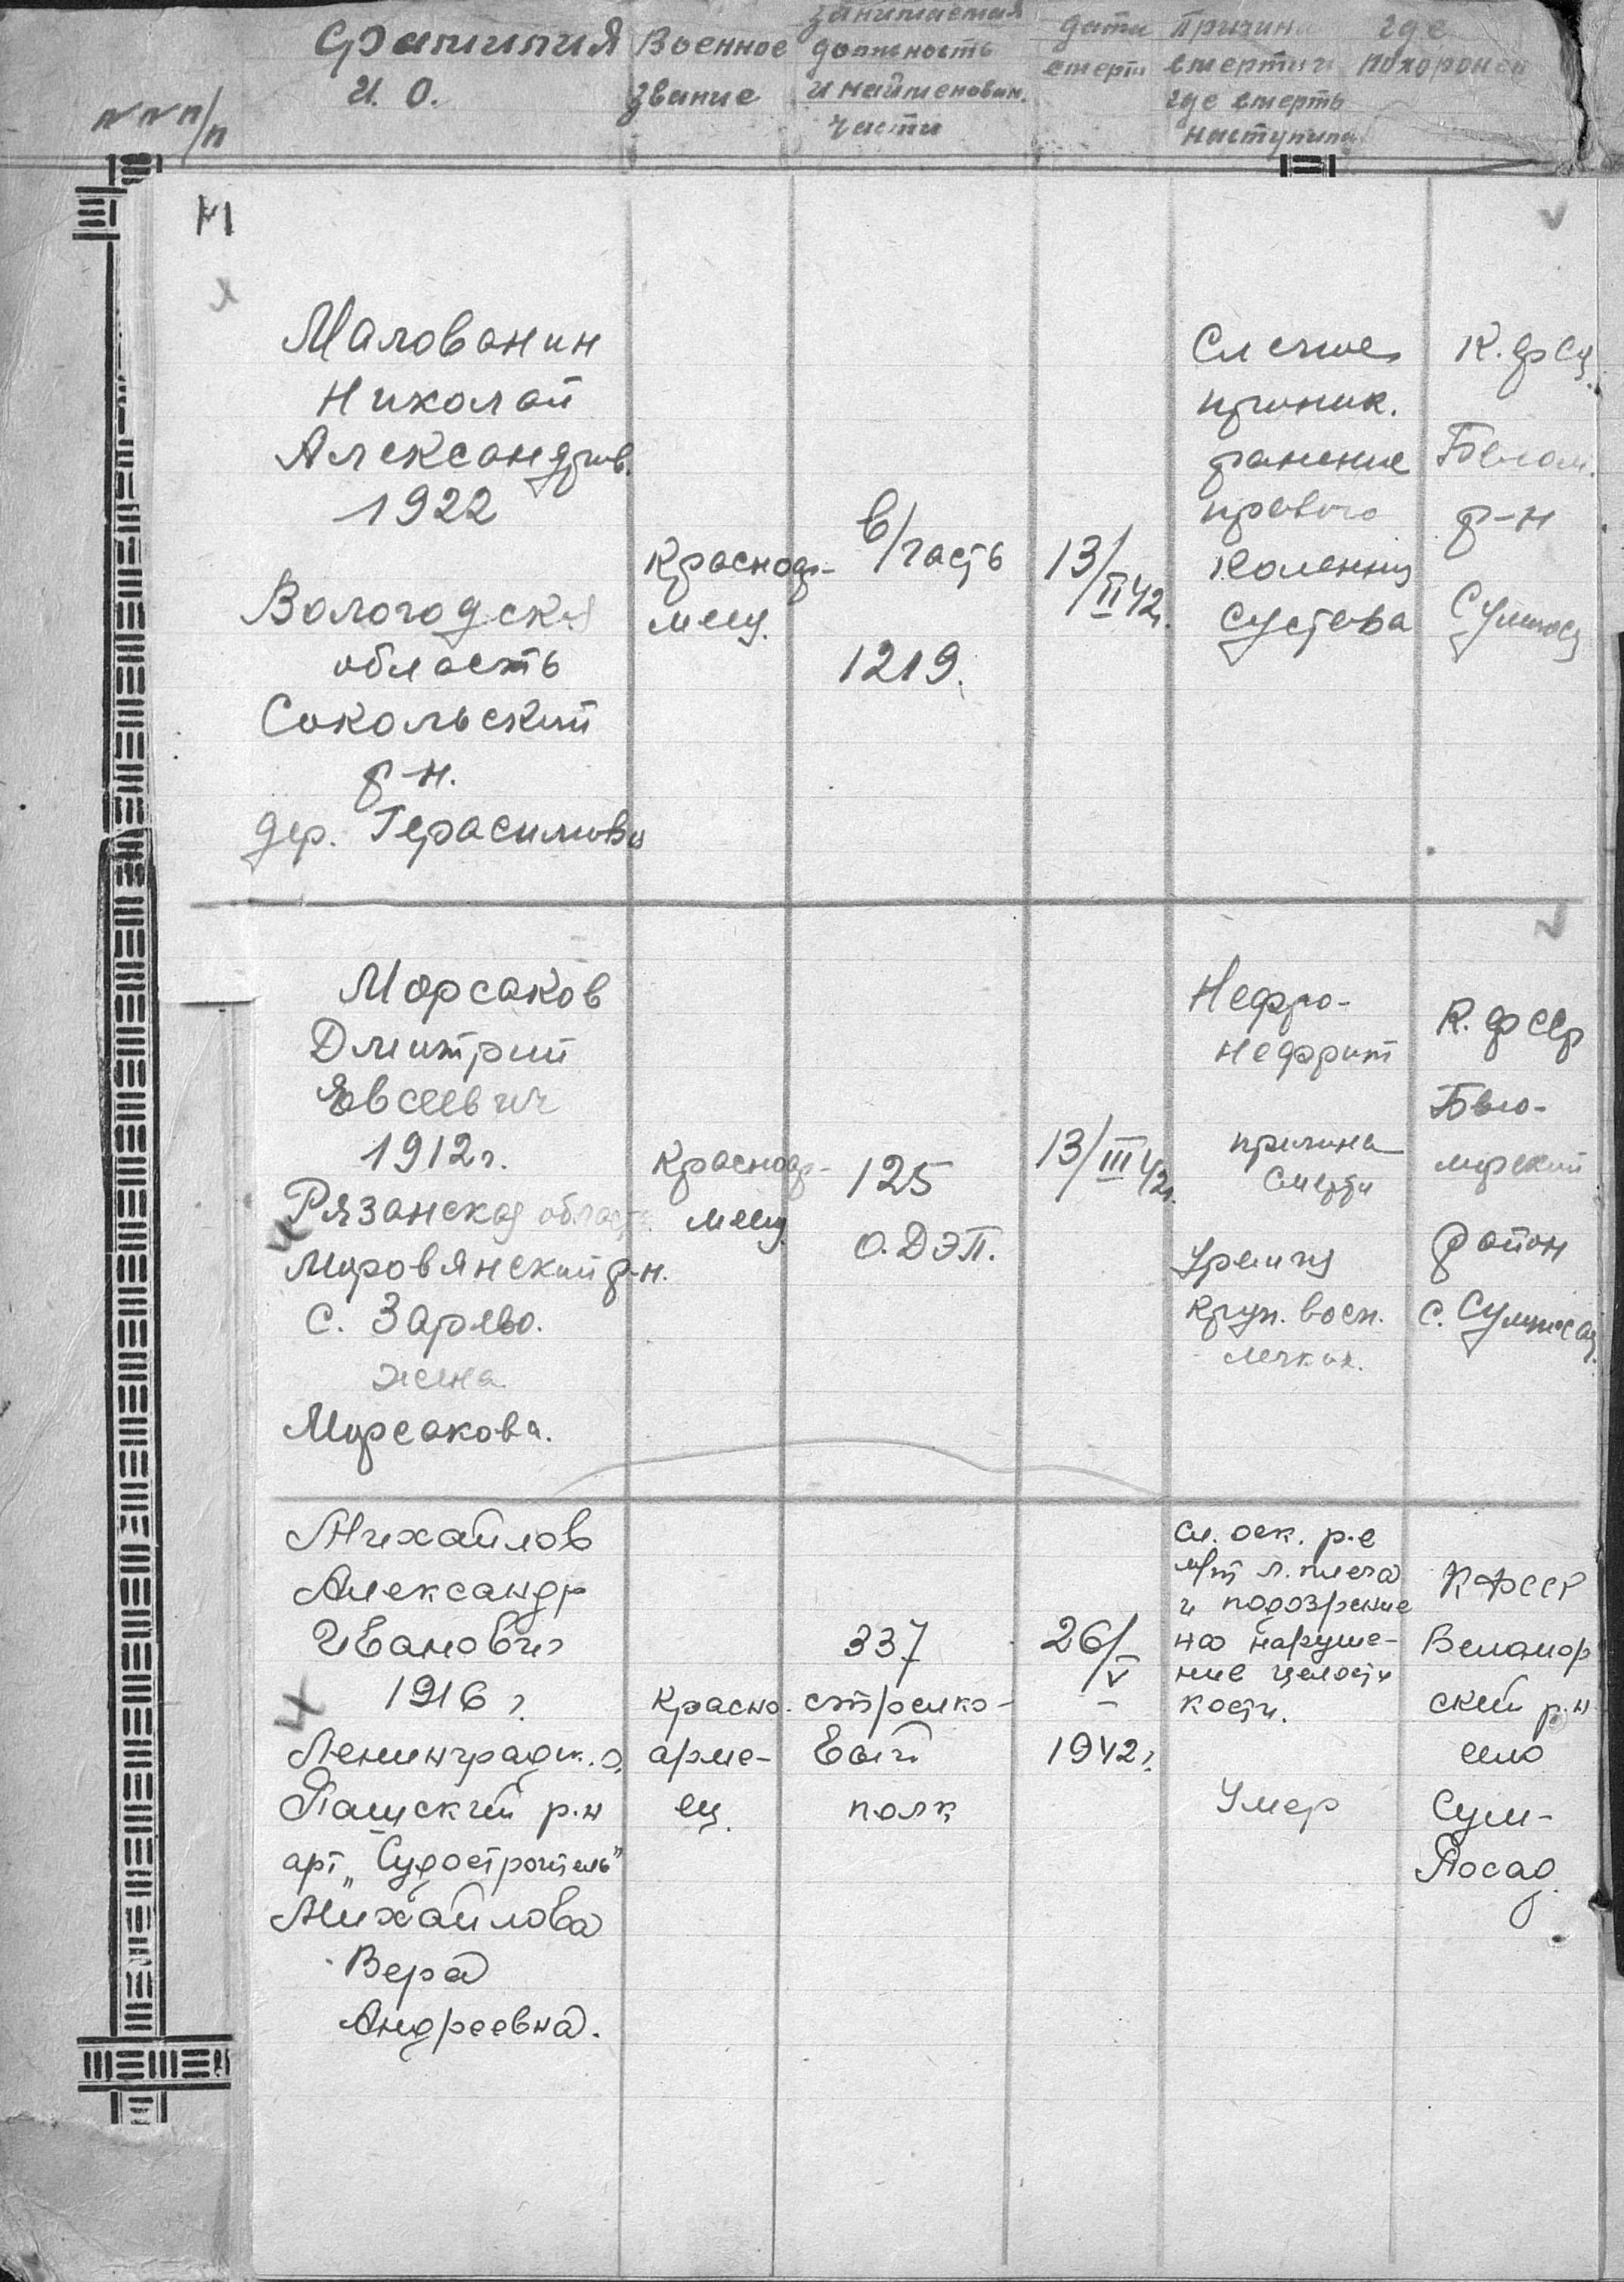 № № п/п
Фамилия
И. О.
Военное
звание
занимаемая
должность
и наименован.
части
дата
смерти
Причина
смерти и
где смерть
наступила
где
похоронен
М
Малованин
Николай
Александров.
1922
Вологодская
область
Сокольский
р-н.
дер. Герасимово
Красноар-
меец.
в/часть
1219.
13/II 42г.
Слепое
проник.
ранение
правого
коленного
сустава
К.фсс
Белом.
р-н
Сумпос
Морсаков
Дмитрий
Евсеевич
1912г.
Рязанская област
Муровянский р-н.
с. Зарево.
жена
Морсакова.
Красноар-
меец.
125
О.ДЭП.
13/III 42г.
Нефро-
нефрит
причина
смерти
Уремия
круп. восп.
легких.
К. фсср
Бело-
морский
район
с. Сумпосад.
Михайлов
Александр
Иванович
1916 г.
Ленинградск. о.
Пашский р-н
арт. „Судостроитель"
Михайлова
Вера
Андреевна.
красно-
арме-
ец.
337
стрелко-
вый
полк
26/V
1942г.
сл. оск. р-е
м/т л. плеча
и подозрение
на наруше-
ние целости
кости.
Умер
КФССР
Беломор
ский р-н
село
Сум-
Посад.